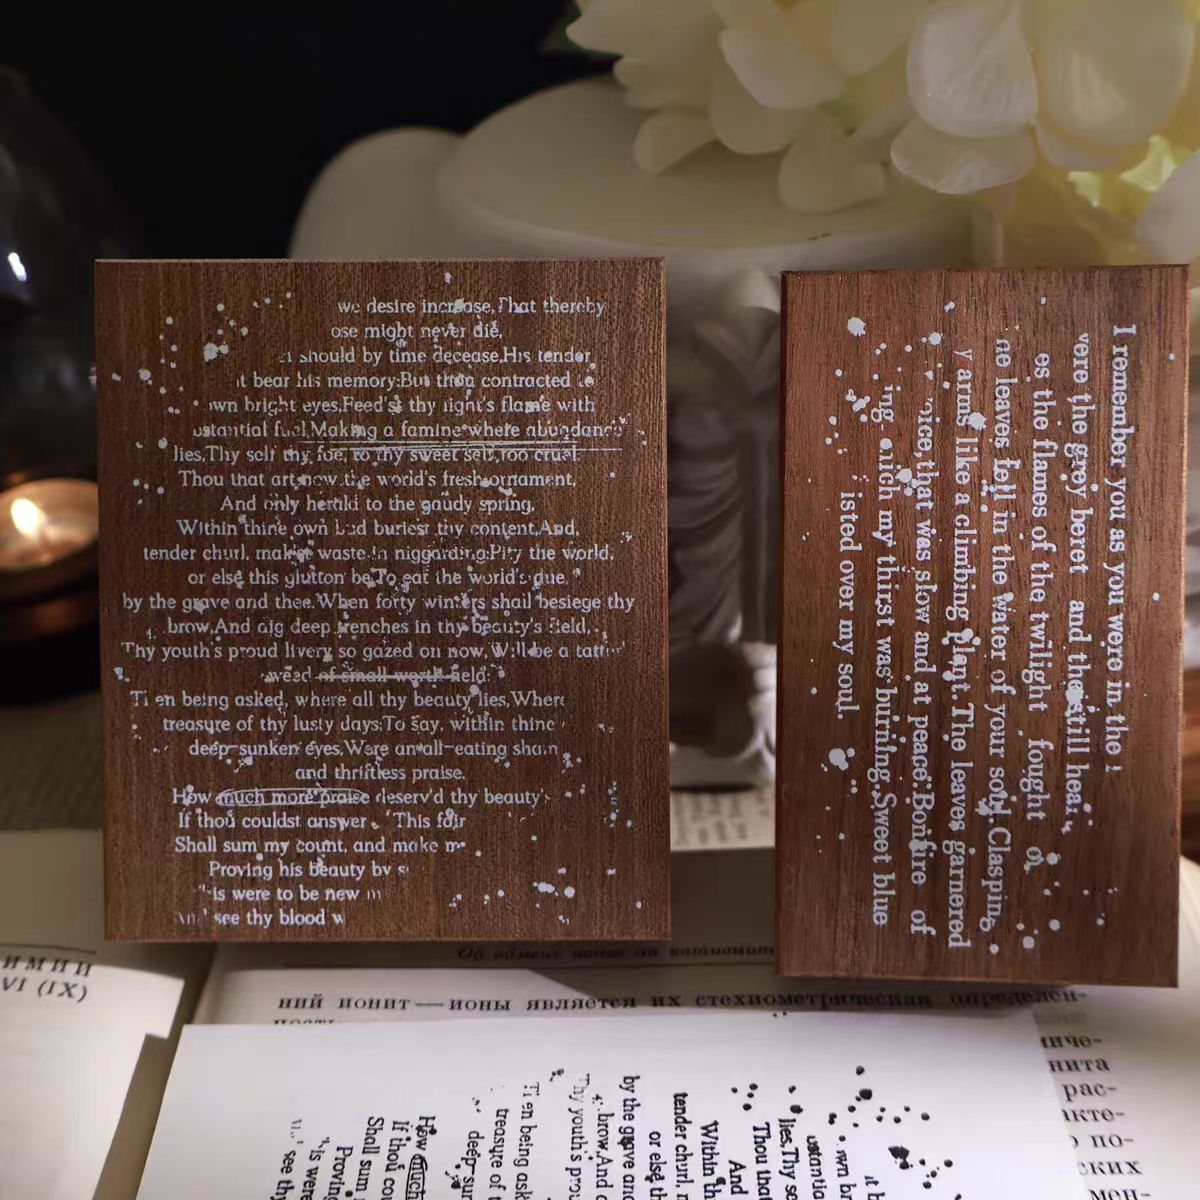 we desire increase,That thereby
ose might never die,
should by time decease,His tender
it bear his memory:But thou contracted to
wn bright eyes,Feed'st thy light's flame with
ustantial fuel,Making a famine where abundance
lies,Thy self thy foe, to thy sweet self too cruel:
Thou that art now the world's fresh ornament,
And only herald to the gaudy spring,
Within thine own bud buriest thy content,And,
tender churl, mak'st waste in niggarding:Pity the world,
or else this glutton be,To eat the world's due,
by the grave and thee.When forty winters shall besiege thy
brow,And dig deep trenches in thy beauty's field,
Thy youth's proud livery so gazed on now,Will be a tatter'
weed of small worth held:
Ti en being asked, where all thy beauty lies,Where
treasure of thy lusty days;To say, within thine
deep-sunken eyes,Were an all-eating sham
and thriftless praise.
How much more praise deserv'd thy beauty's
If thou couldst answer 'This fair
Shall sum my count, and make m
Proving his beauty by s
his were to be new m
And see thy blood w
I remember you as you were in the
were the grey beret and the still hear
es the flames of the twilight fought o
he leaves fell in the water of your soul.Clasping
y arms like a climbing plant.The leaves garnered
voice,that was slow and at peace:Bonfire of
ing my thirst was burning.Sweet blue
isted over my soul.
ИМИИ
VI (IX)
ний ионит—ионы является их стехиометрическая определен-
ниче-
нита
рас-
акте-
по-
ских
мен-
it b
wn br
ustantia
lies,Thy se
Thou tha
And
Within th
tender churl, m
or else th
by the grave and
brow,And d
Thy youth's prou
Ti en being ask
treasure of t
deep-sun
How much
If thou cou
Shall sum
Proving
is were
see th